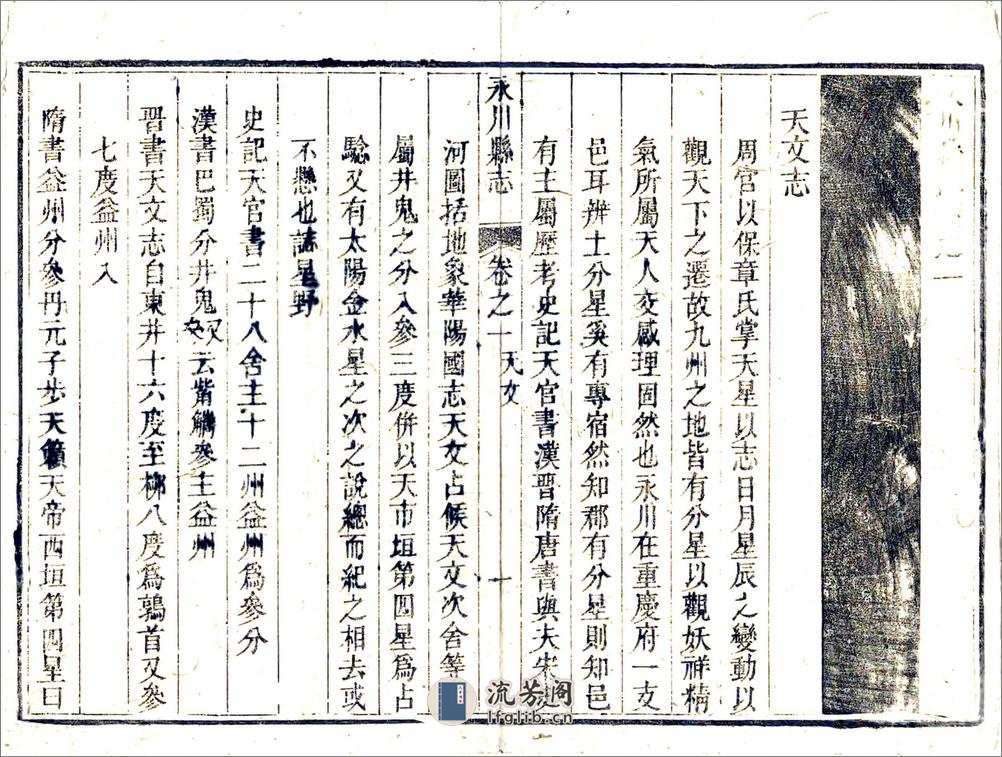 天文志
周官以保章氏掌天星以志日月星辰之變動以
觀天下之遷故九州之地皆有分星以觀妖祥精
氣所屬天人交感理固然也永川在重慶府一支
邑耳辨土分星奚有專宿然知郡有分星則知邑
有主屬歷考史記天官書漢晉隋唐書與夫宋
永川縣志 卷之一 天文 一
河圖括地象華陽國志天文占候天文次舍等
屬井鬼之分入參三度併以天市垣第四星爲占
驗又有太陽金水星之次之說總而紀之相去或
不懸也誌星野
史記天官書二十八舍主十二州益州爲參分
漢書巴蜀分井鬼又云觜觿參主益州
晉書天文志自東井十六度至柳八度爲鶉首又參
七度益州入
隋書益州分參丹元子步天歌天帝西垣第四星曰
流芳阁
lfglib.cn